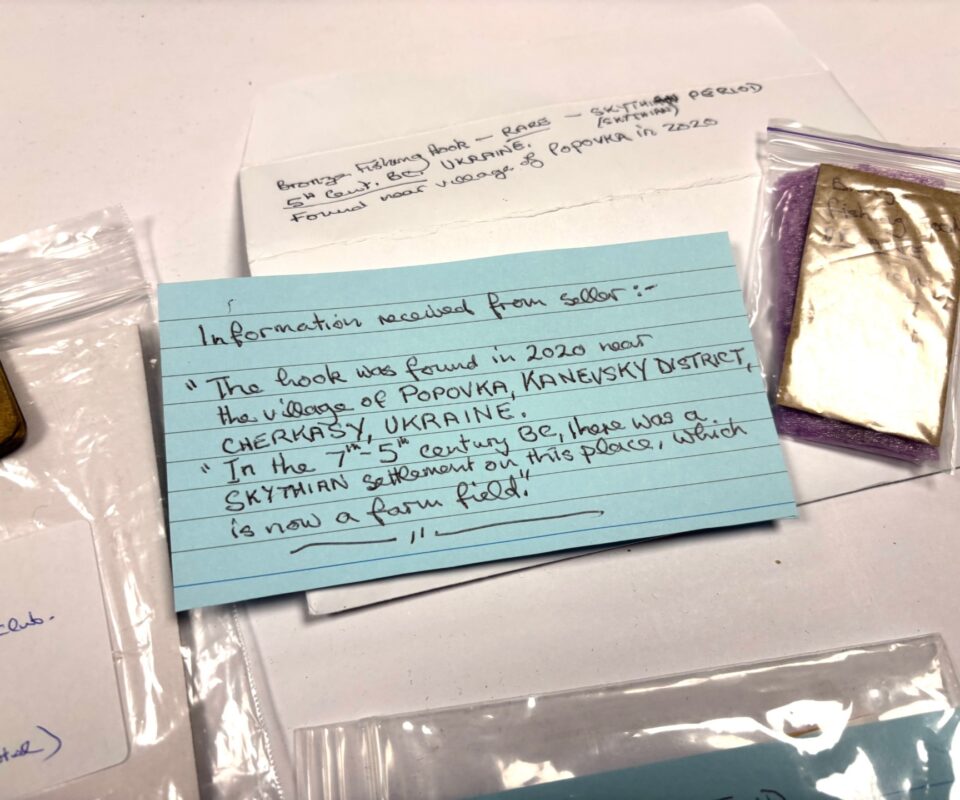 Bronze Fishing Hook – RARE – SKYTHIAN PERIOD
(SKYTHIAN)
5th Cent. BC, UKRAINE.
Found near village of POPOVKA in 2020
Information received from seller:-
"The hook was found in 2020 near
the village of POPOVKA, KANEVSKY DISTRICT,
CHERKASY, UKRAINE.
"In the 7th-5th century BC, there was a
SKYTHIAN settlement on this place, which
is now a farm field."
Fishing
Club.